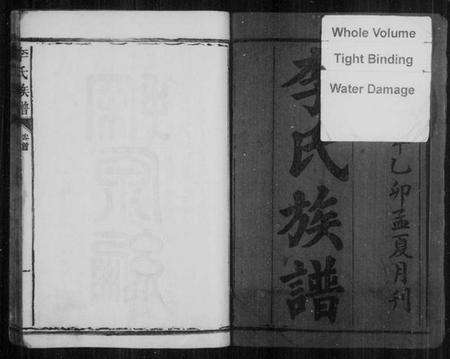 Whole Volume
Tight Binding
Water Damage
年乙卯孟夏月刊
李氏族譜
李氏族譜
卷首